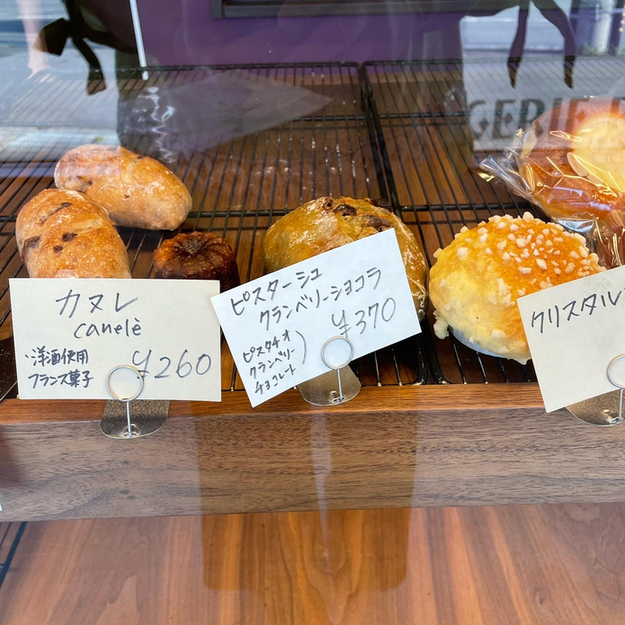 GERIE
カヌレ
canelè
・洋酒使用
フランス菓子
¥260
ピスターシュ
クランベリーショコラ
ピスタチオ
クランベリー
チョコレート
)
¥370
クリスタル